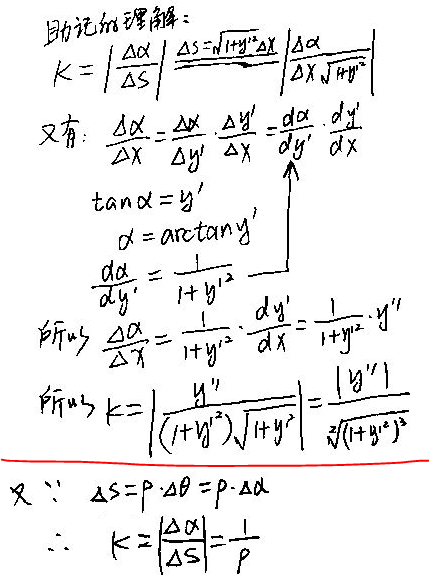 助记的理解:
K = |Δα/ΔS| ΔS=√(1+y'²)ΔX |Δα/(ΔX√(1+y'²))|
又有: Δα/ΔX = Δα/Δy' · Δy'/ΔX = dα/dy' · dy'/dx
tanα = y'
α = arctany'
dα/dy' = 1/(1+y'²)
所以 Δα/ΔX = 1/(1+y'²) · dy'/dx = 1/(1+y'²) · y''
所以 K = |y''/((1+y'²)√(1+y'²))| = |y''|/²√(1+y'²)³
又∵ ΔS=ρ·Δθ=ρ·Δα
∴ K = |Δα/ΔS| = 1/ρ